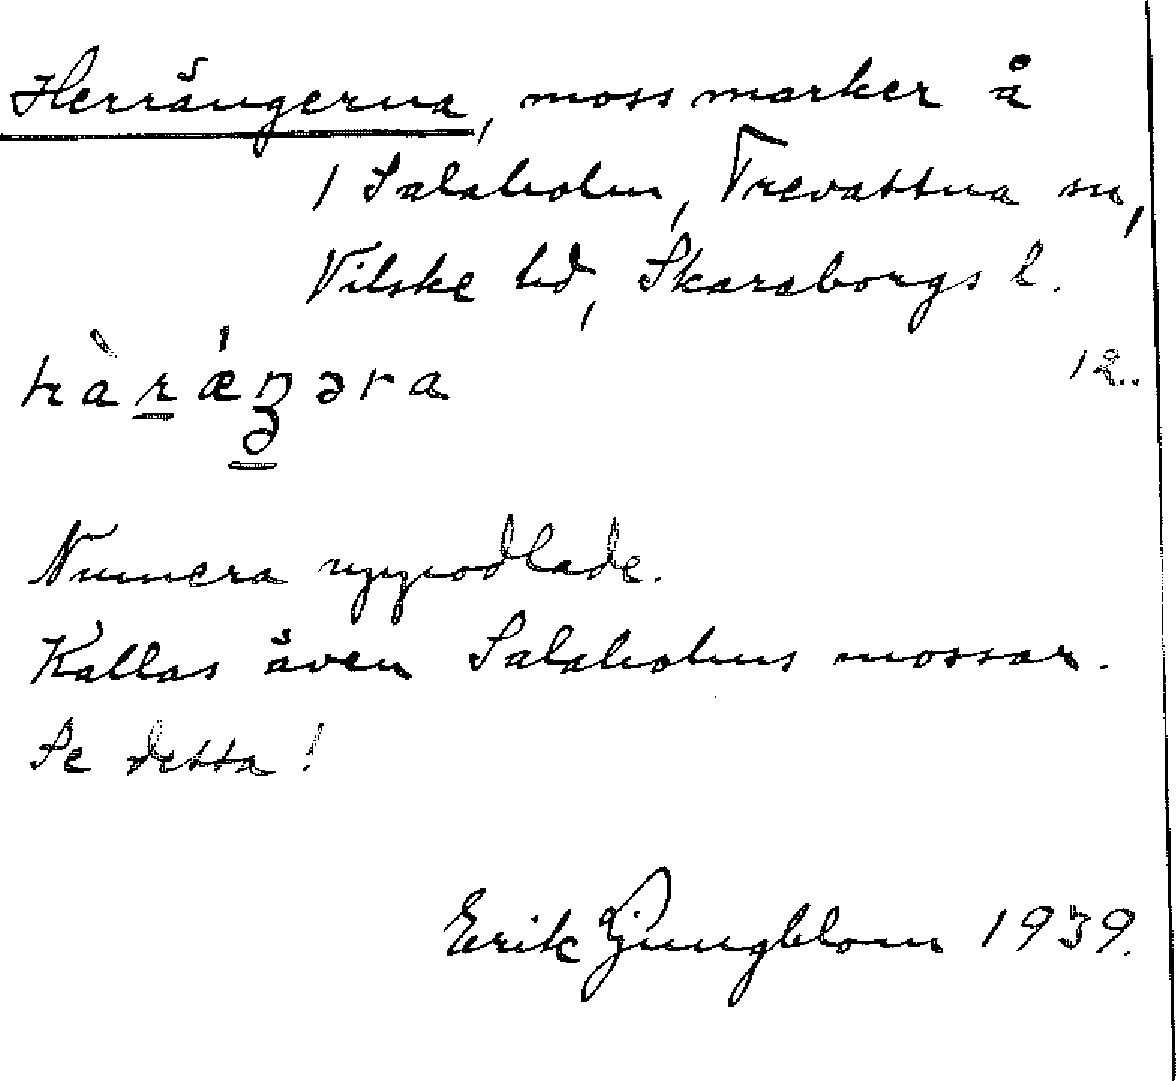 Herrängerna, mossmarker å
1 Salaholm, Trevattna sn,
Vilske hd, Skaraborgs l.
12..
Numera uppodlade.
Kallas även Salaholms mossar.
Se detta!
Erik Ljungblom 1939.